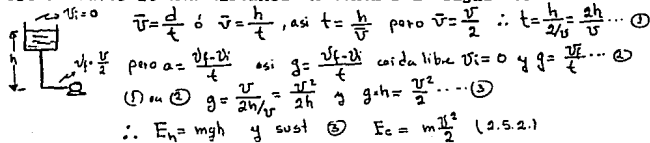 v̄ = d/t ó v̄ = h/t , asi t = h/v̄ pero v̄ = v/2 ∴ t = h/(2/v) = 2h/v ··· ①
pero a = (vf - vi)/t asi g = (vf - vi)/t caida libre vi = 0 y g = vf/t ··· ②
① en ② g = v/(2h/v) = v²/2h y g·h = v²/2 ····· ③
∴ Eh = mgh y sust ③ Ec = m v²/2 (2.5.2.)
vi = 0
h
vf = v/2